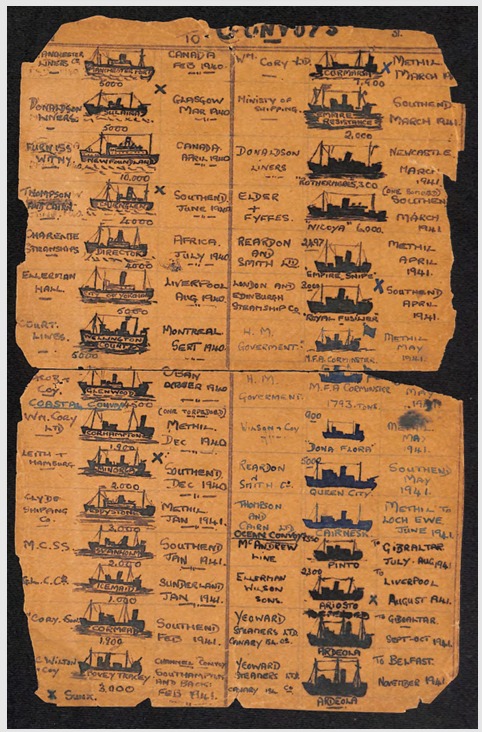 10 CONVOYS
MANCHESTER LINERS Co MANCHESTER PORT 5000 CANADA FEB 1940
DONALDSON LINERS. SULAIRIA 5000 GLASGOW MAR 1940
FURNISS WITHY NEWFOUNDLAND 10,000 CANADA APRIL 1940
THOMPSON 4000 SOUTHEND JUNE 1940
CHARENTE STEAMSHIPS DIRECTOR 4000 AFRICA. JULY 1940
ELLERMAN HALL. CITY OF 5000 LIVERPOOL AUG 1940.
COURT. LINES. WELLINGTON COURT 5000 MONTREAL SEPT 1940.
Coy. GLENWOOD 1500 OBAN OCTOBER 1940
COASTAL CONVOYS
WM. CORY LTD CORHAMPTON 1,900 (ONE TORPEDOED) METHIL. DEC 1940
LEITH & HAMBURG MINORCA 2,000 SOUTHEND DEC 1940
CLYDE SHIPPING Co. TODDYSTONE 2,000 METHIL JAN 1941.
M.C.S.S. SVANHOLM 2,000 SOUTHEND JAN 1941.
ICEMAID 2,000 SUNDERLAND JAN 1941.
CORY. CORMEAD 1,900 SOUTHEND FEB 1941.
WILSON Coy BOVEY TRACEY 3,000 CHANNEL CONVOY SOUTHAMPTON AND BACK FEB 1941.
X SUNK.
WM. CORY LTD. CORMARSH X 1,900 METHIL MARCH
MINISTY OF SHIPPING. EMPIRE RESISTANCE 2,000 SOUTHEND MARCH 1941.
DONALDSON LINERS ROTHERMERE 5,300 NEWCASTLE MARCH 1941
ELDER & FYFFES. NICOYA 6,000. (ONE BOMBED) SOUTHEN MARCH 1941
REARDON AND SMITH LTD 2497 EMPIRE METHIL APRIL 1941.
LONDON AND EDINBURGH STEAMSHIP Co. 3000 ROYAL FUSILIER X SOUTHEND APRIL 1941.
H.M. GOVERMENT. M.F.A. CORMINSTER. METHIL MAY 1941
H.M. GOVERMENT. M.F.A CORMINSTER 1793. TONS. MAY
WILSON & Coy 900 "BONA FLORA" MAY 1941.
REARDON & SMITH Co. 5000 QUEEN CITY. SOUTHEND MAY 1941.
THOMPSON AND CAIRN LTD CAIRNESK METHIL TO LOCH EWE JUNE 1941.
OCEAN CONVOY
McANDREW LINE PINTO TO GIBRALTAR JULY-AUG 1941
ELLERMAN WILSON SONS. 2100 ARIOSTO TO LIVERPOOL X AUGUST 1941.
YEOWARD STEAMERS LTD. CANARY ISL. Co. ARDEOLA TO GIBRALTAR. SEPT-OCT 1941.
YEOWARD STEAMERS LTD CANARY ISL Co ARDEOLA TO BELFAST. NOVEMBER 1941